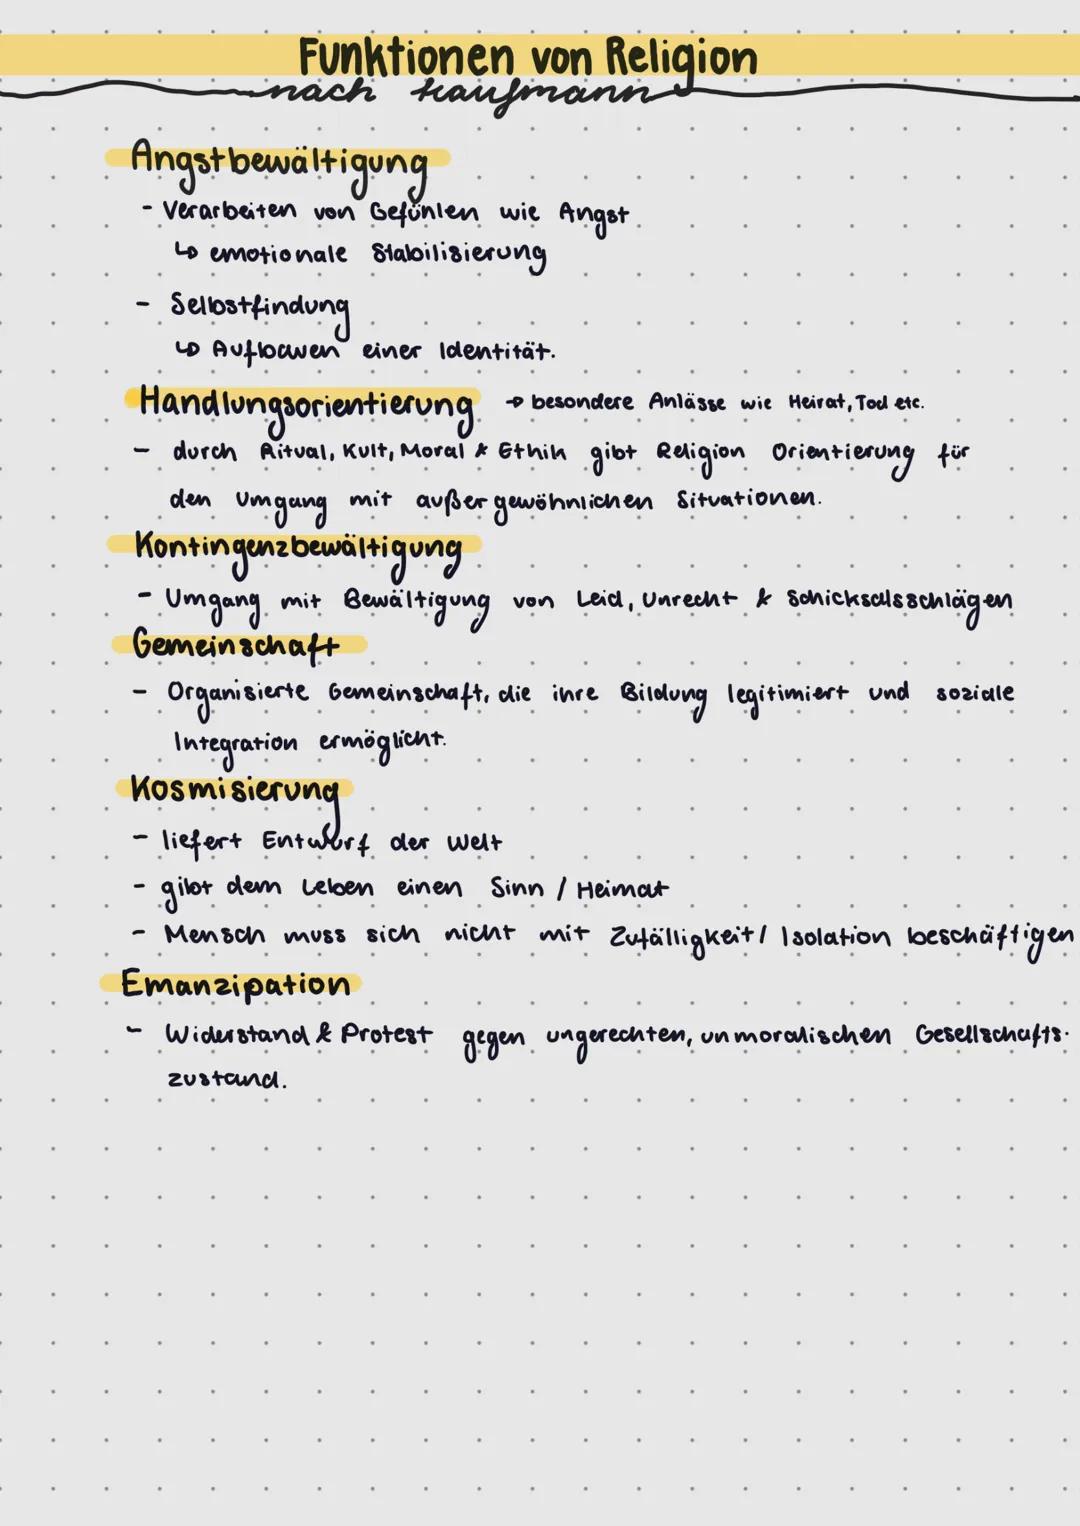 Funktionen von Religion
nach Kaufmann
Angstbewältigung
- Verarbeiten von Gefühlen wie Angst
↳ emotionale Stabilisierung
- Selbstfindung
↳ Aufbauen einer Identität.
Handlungsorientierung → besondere Anlässe wie Heirat, Tod etc.
- durch Ritual, Kult, Moral & Ethik gibt Religion Orientierung für
den Umgang mit außergewöhnlichen Situationen.
Kontingenzbewältigung
- Umgang mit Bewältigung von Leid, Unrecht & Schicksalsschlägen
Gemeinschaft
- Organisierte Gemeinschaft, die ihre Bildung legitimiert und soziale
Integration ermöglicht.
Kosmisierung
- liefert Entwurf der Welt
- gibt dem Leben einen Sinn / Heimat
- Mensch muss sich nicht mit Zufälligkeit / Isolation beschäftigen
Emanzipation
- Widerstand & Protest gegen ungerechten, unmoralischen Gesellschafts-
zustand.